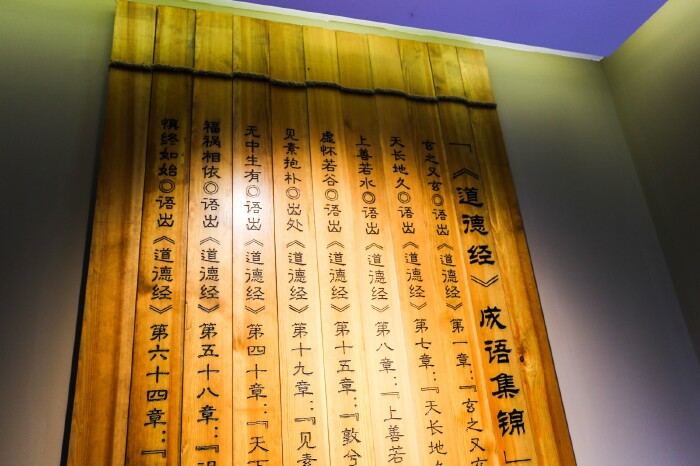 「《道德经》成语集锦」
玄之又玄◎语出《道德经》第一章：『玄之又玄
天长地久◎语出《道德经》第七章：『天长地久
上善若水◎语出《道德经》第八章：『上善若
虚怀若谷◎语出《道德经》第十五章：『敦兮
见素抱朴◎出处《道德经》第十九章：『见素
无中生有◎语出《道德经》第四十章：『天下
福祸相依◎语出《道德经》第五十八章：『
慎终如始◎语出《道德经》第六十四章：『